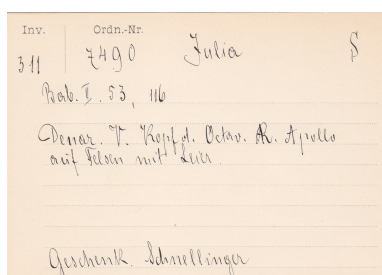 Inv. Ordn.-Nr.
311 7490 Julia S
Bab. II. 53, 116
Denar. V. Kopf d. Octav. R. Apollo
auf Felsen mit Leier.
Geschenk. Schnellinger